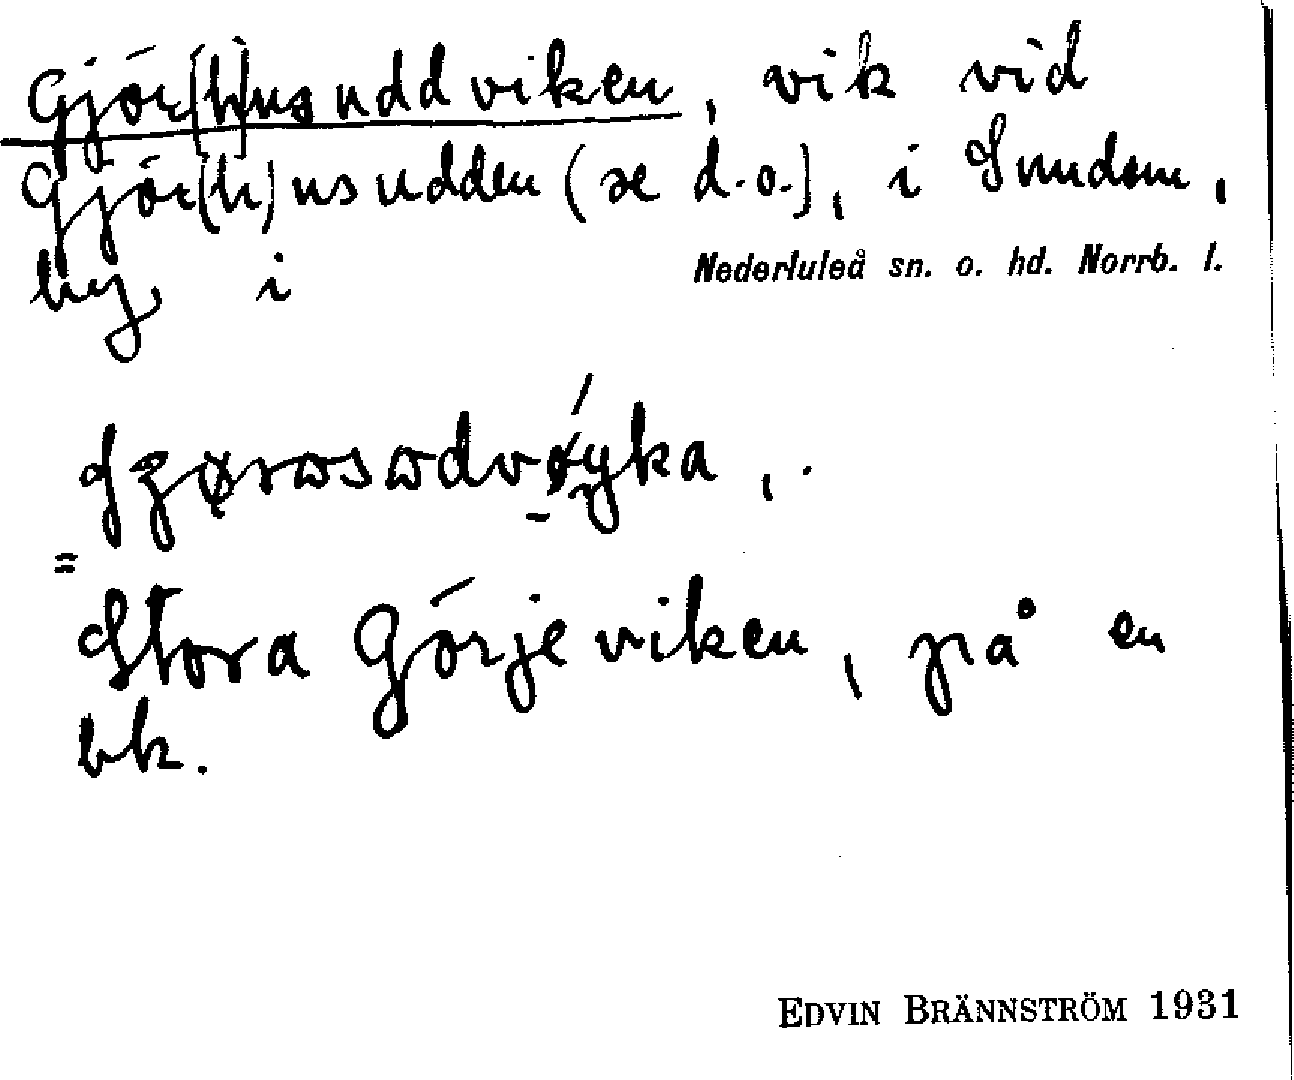 Gjör[h]usuddviken, vik vid
Gjör(h)usudden (se d.o.), i Sundom,
by i Nederluleå sn. o. hd. Norrb. l.
=
Stora Görjeviken, på en
bk.
EDVIN BRÄNNSTRÖM 1931